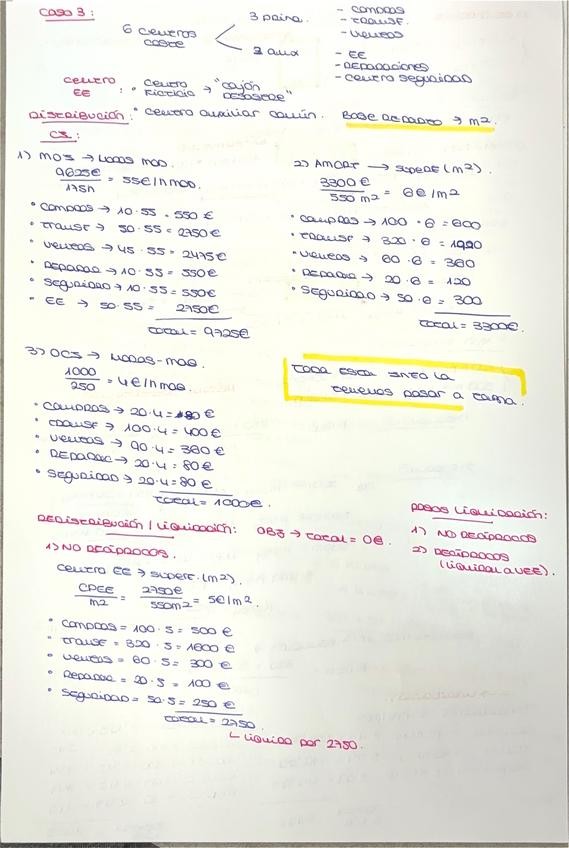 CASO 3:
6 centros coste
3 paina.
- compras
- transf.
- ventas
2 aux
- EE
- Reparaciones
- centro seguridad
centro EE : • centro ficticio → "cajón desastre"
Distribución: • centro auxiliar común. Base reparto → m2.
CS:
1) MOS → horas MOD.
9625€ / 175h = 55€/h mod.
• compras → 10·55 = 550 €
• transf → 50·55 = 2750€
• ventas → 45·55 = 2475€
• Reparac → 10·55 = 550€
• Seguridad → 10·55 = 550€
• EE → 50·55 = 2750€
total = 9725€
2) AMORT → superf (m2).
3300 € / 550 m2 = 6€/m2
• compras → 100·6 = 600
• transf → 320·6 = 1920
• ventas → 60·6 = 360
• Reparac → 20·6 = 120
• Seguridad → 50·6 = 300
total = 3300€.
3) OCS → horas-mos.
1000 / 250 = 4€/h mos.
• compras → 20·4 = 80 €
• transf → 100·4 = 400€
• ventas → 90·4 = 360€
• Reparac → 20·4 = 80€
• Seguridad → 20·4 = 80€
total = 1000€.
toda esta info la tenemos pasar a tabla.
Redistribución / Liquidación: OBJ → total = 0€.
Pasos Liquidación:
1) NO RECÍPROCOS
2) RECÍPROCOS (liquidar a UEE).
1) NO RECÍPROCOS.
centro EE → superf. (m2).
CPEE / m2 = 2750€ / 550m2 = 5€/m2.
• compras = 100·5 = 500 €
• transf = 320·5 = 1600 €
• ventas = 60·5 = 300 €
• Reparac = 20·5 = 100 €
• Seguridad = 50·5 = 250 €
total = 2750.
└ liquido por 2750.